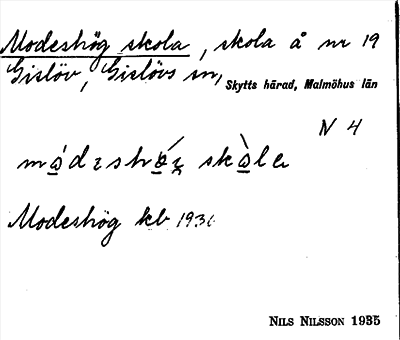 Modeshög skola, skola å nr 19
Gislöv, Gislövs sn, Skytts härad, Malmöhus län
N 4
Modeshög kb 193
NILS NILSSON 1935